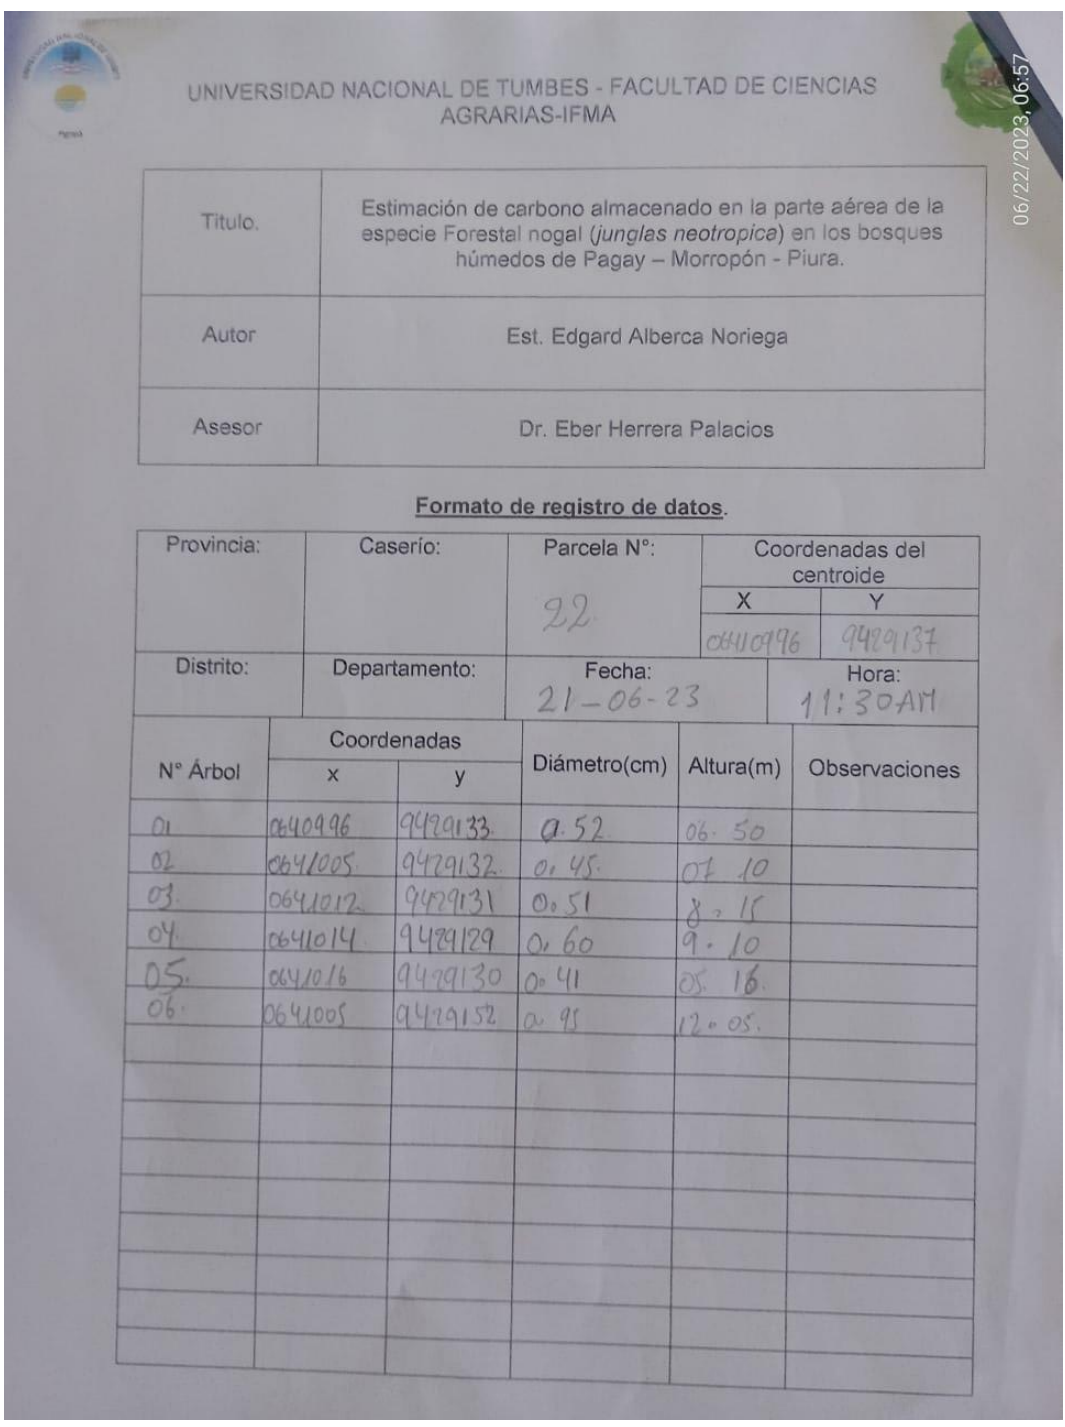 UNIVERSIDAD NACIONAL DE TUMBES - FACULTAD DE CIENCIAS
AGRARIAS-IFMA
06/22/2023, 06:57
Titulo.
Estimación de carbono almacenado en la parte aérea de la
especie Forestal nogal (junglas neotropica) en los bosques
húmedos de Pagay – Morropón - Piura.
Autor
Est. Edgard Alberca Noriega
Asesor
Dr. Eber Herrera Palacios
Formato de registro de datos.
Provincia: Caserío: Parcela N°: Coordenadas del
centroide
22 X Y
9429137
Distrito: Departamento: Fecha: Hora:
21-06-23 11:30AM
N° Árbol Coordenadas Diámetro(cm) Altura(m) Observaciones
x y
01 0640996 9429133. 0.52 06.50
02 0641005. 9429132. 0.45. 07.10
03. 0641012. 9429131 0.51 8.15
04. 0641014. 9429129 0.60 9.10
05. 0641016 9429130 0.41 05.16.
06. 0641005 9429152 0.95 12.05.